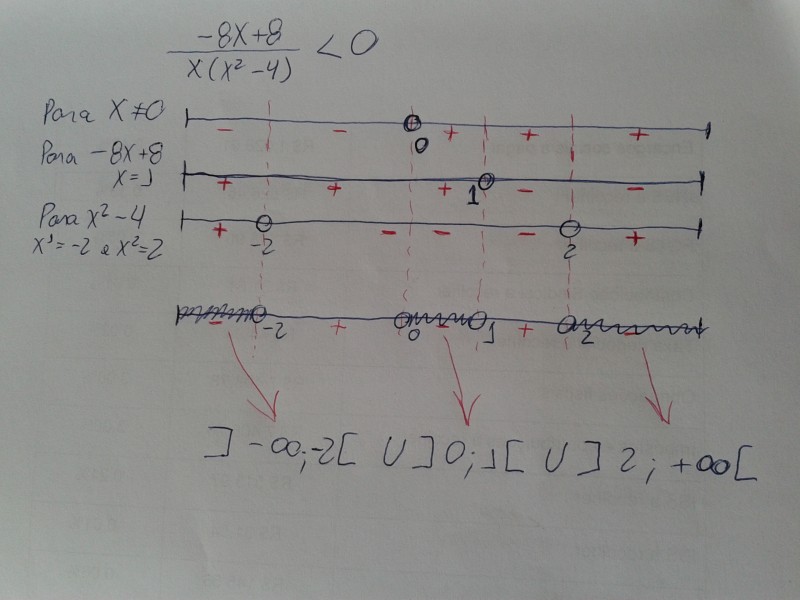 -8X+8
X(X²-4) <0
Para X≠0
- - + + +
0
Para -8X+8
X=1
+ + + - -
1
Para X²-4
X¹=-2 e X²=2
+ - - - +
-2 2
- + - + -
-2 0 1 2
]-∞;-2[ U ]0;1[ U ]2;+∞[